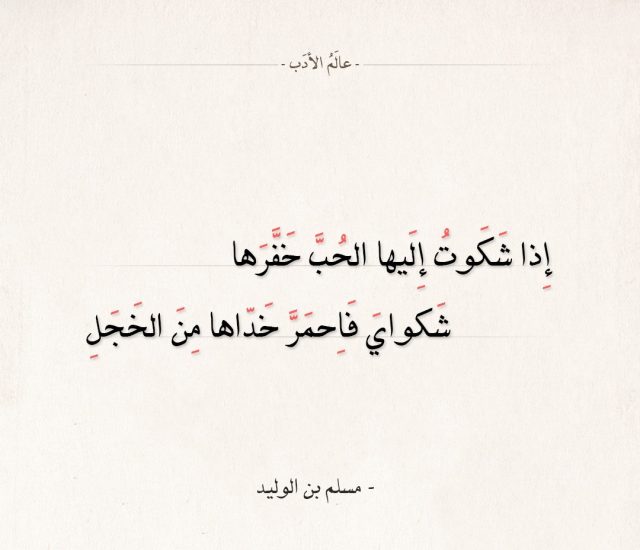 - عالَمُ الأدَب -
إِذا شَكَوتُ إِلَيها الحُبَّ خَفَّرَها
شَكوايَ فَاِحمَرَّ خَدّاها مِنَ الخَجَلِ
- مسلم بن الوليد